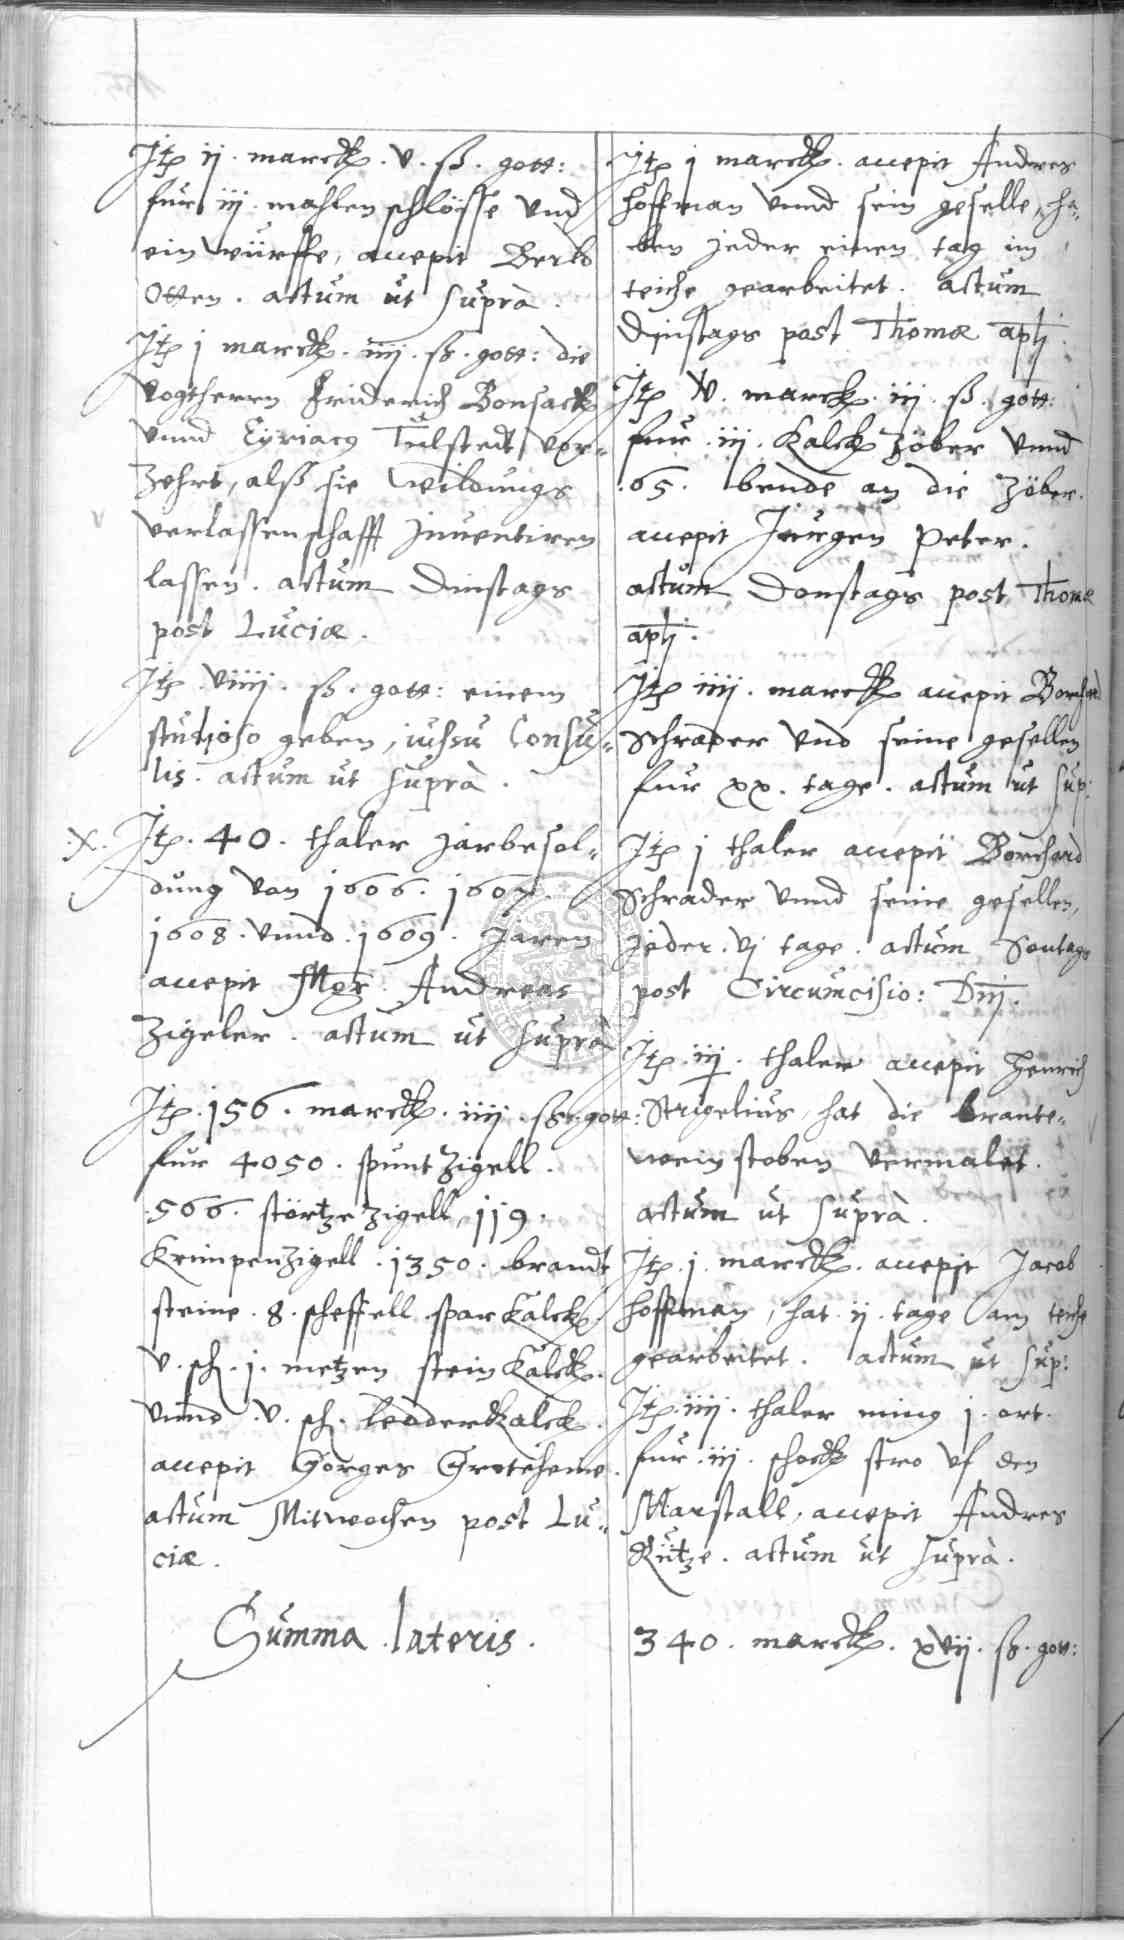 Itp ij. marck. v. ß. gott:
fur iij. mahlen schlösse Und
ein wurffe, accepit Berld
Otten. actum ut suprà.
Itp j marck. iiij. ß. gott: die
vogtherrn Friderich Bonsack
Unnd Cyriacg Tülstedt, vor=
Zehrt, alß sie Wildungs
verlassenschafft Jnventiren
lassen. actum Dinstags
post Luciæ.
Itp. viiij. ß. gott: einem
studioso geben, iussu Consu=
lis. actum ut suprà.
.X. Itp. 40. thaler Jarbesol=
dung von 1606. 1607
1608. Unnd. 1609. Jaren
accepit Mgr. Andreas
Zigeler. actum ut suprà
Itp. 156. marck. iiij. ß. gott:
fur 4050. spunt Zigell.
.566. störtze Zigell, 119.
Krimpen Zigell. 1350. brandt
steine. 8. scheffell spar Kalck.
v. sch. j. metzen stein Kalck.
Unnd. v. sch. ledder Kalck.
accepit Görges Grotehenne.
actum Mitwochen post Lu=
ciæ.
Summa lateris.
Itp j marck. accepit Andres
Hoffman Unnd sein geselle, ha=
ben jeder einen tag im
teiche gearbeitet. actum
Dinstags post Thomæ aptj
Itp v. marck. iij. ß. gott:
fur. iij. Kalck Zöber Unnd
.65. bende an die Zöber.
accepit Jurgen Peter.
actum Donstags post Thomæ
aptj.
Itp iiij. marck accepit Borchard
Schrader Und seine gesellen
fur xx. tage. actum ut sup:
Itp j thaler accepit Borchard
Schrader Unnd seine gesellen,
jeder. vj tage. actum Sontags
post Circumcisio: Dnj.
Itp. iij. thaler accepit Henrich
Strigelius, hat die brante=
wein stoben vermalet.
actum ut suprà.
Itp. j. marck. accepit Jacob
Hoffman, hat. ij. tage am teiche
gearbeitet. actum ut sup:
Itp. iiij. thaler ming j. ort.
fur. iij. schock stro Uf den
Marstall, accepit Andres
Rütze. actum ut suprà.
340. marck. xvij. ß. gott: